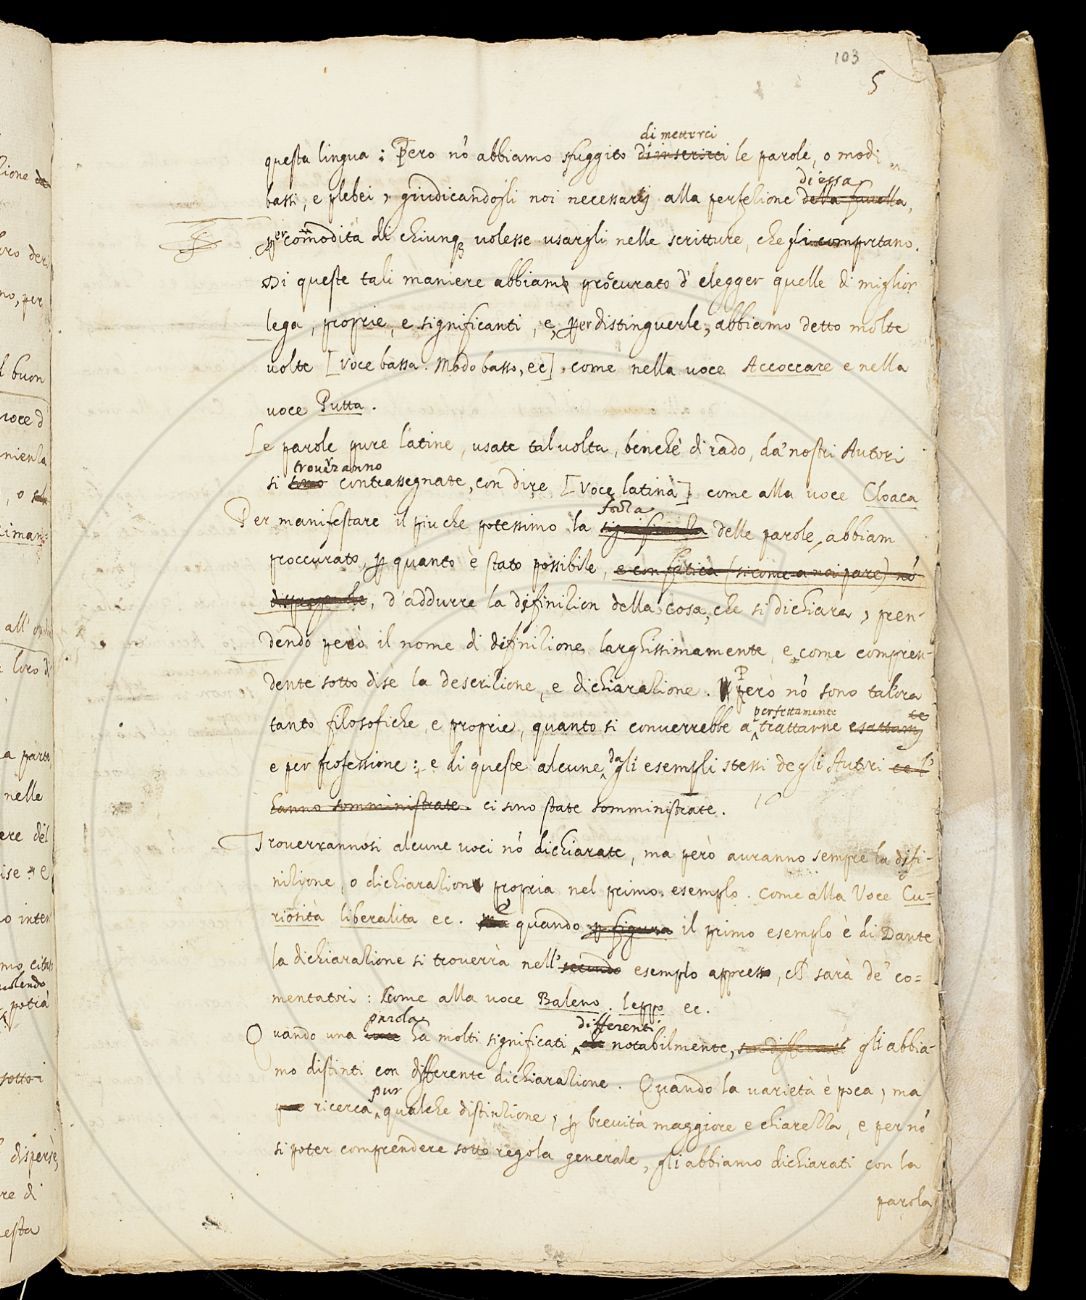 103
5
di metterci
questa lingua : Però nō abbiamo sfuggito d'inserirci le parole, o modi
di essa
bassi, e plebei, giudicandogli noi necessarij alla perfezione della favella,
per comodità di chiunq; volesse usargli nelle scritture, che gli comportano.
Di queste tali maniere abbiamo procurato d'elegger quelle di miglior
lega, proprie, e significanti, e, per distinguerle, abbiamo detto molte
volte [voce bassa. Modo basso, ec], come nella voce Accoccare e nella
voce Putta.
Le parole pure latine, usate talvolta, benchè di rado, da' nostri Autori
troverranno
si sono contrassegnate, con dire [Voce latina] come alla voce Cloaca
forza
Per manifestare il piu che potessimo la significanza delle parole, abbiam
proccurato, p quanto è stato possibile, e con fatica (sicome a noi pare) nō
disprezzabile, d'addurre la definizion della cosa, che si dichiara, pren-
dendo però il nome di definizione larghissimamente, e come compren-
dente sotto di se la descrizione, e dichiarazione. Però nō sono talora
perfettamente te
tanto filosofiche, e proprie, quanto si converrebbe a trattarne esattam
e per professione : e di queste alcune da gli esempli stessi degli Autori ce l'
hanno somministrate. ci sono state somministrate.
Troverrannosi alcune voci nō dichiarate, ma però avranno sempre la difi-
nizione, o dichiarazione propria nel primo esemplo. come alla Voce Cu-
riosità liberalità ec. E quando p figura il primo esemplo è di Dante
la dichiarazione si troverrà nell' secondo esemplo appresso, ch sarà de' co-
mentatori : Come alla voce Baleno. leppo ec.
parola differenti
Quando una voce ha molti significati notabilmente, son differenti gli abbia-
mo distinti con differente dichiarazione. Quando la varietà è poca, ma
pur
pure ricerca qualche distinzione, p brevità maggiore e chiarezza, e per nō
si poter comprendere sotto regola generale, gli abbiamo dichiarati con la
parola